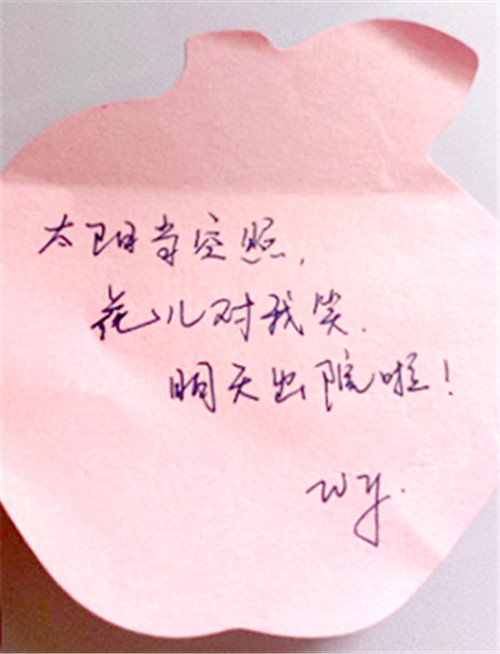 太阳当空照，
花儿对我笑．
明天出院啦！
wy.